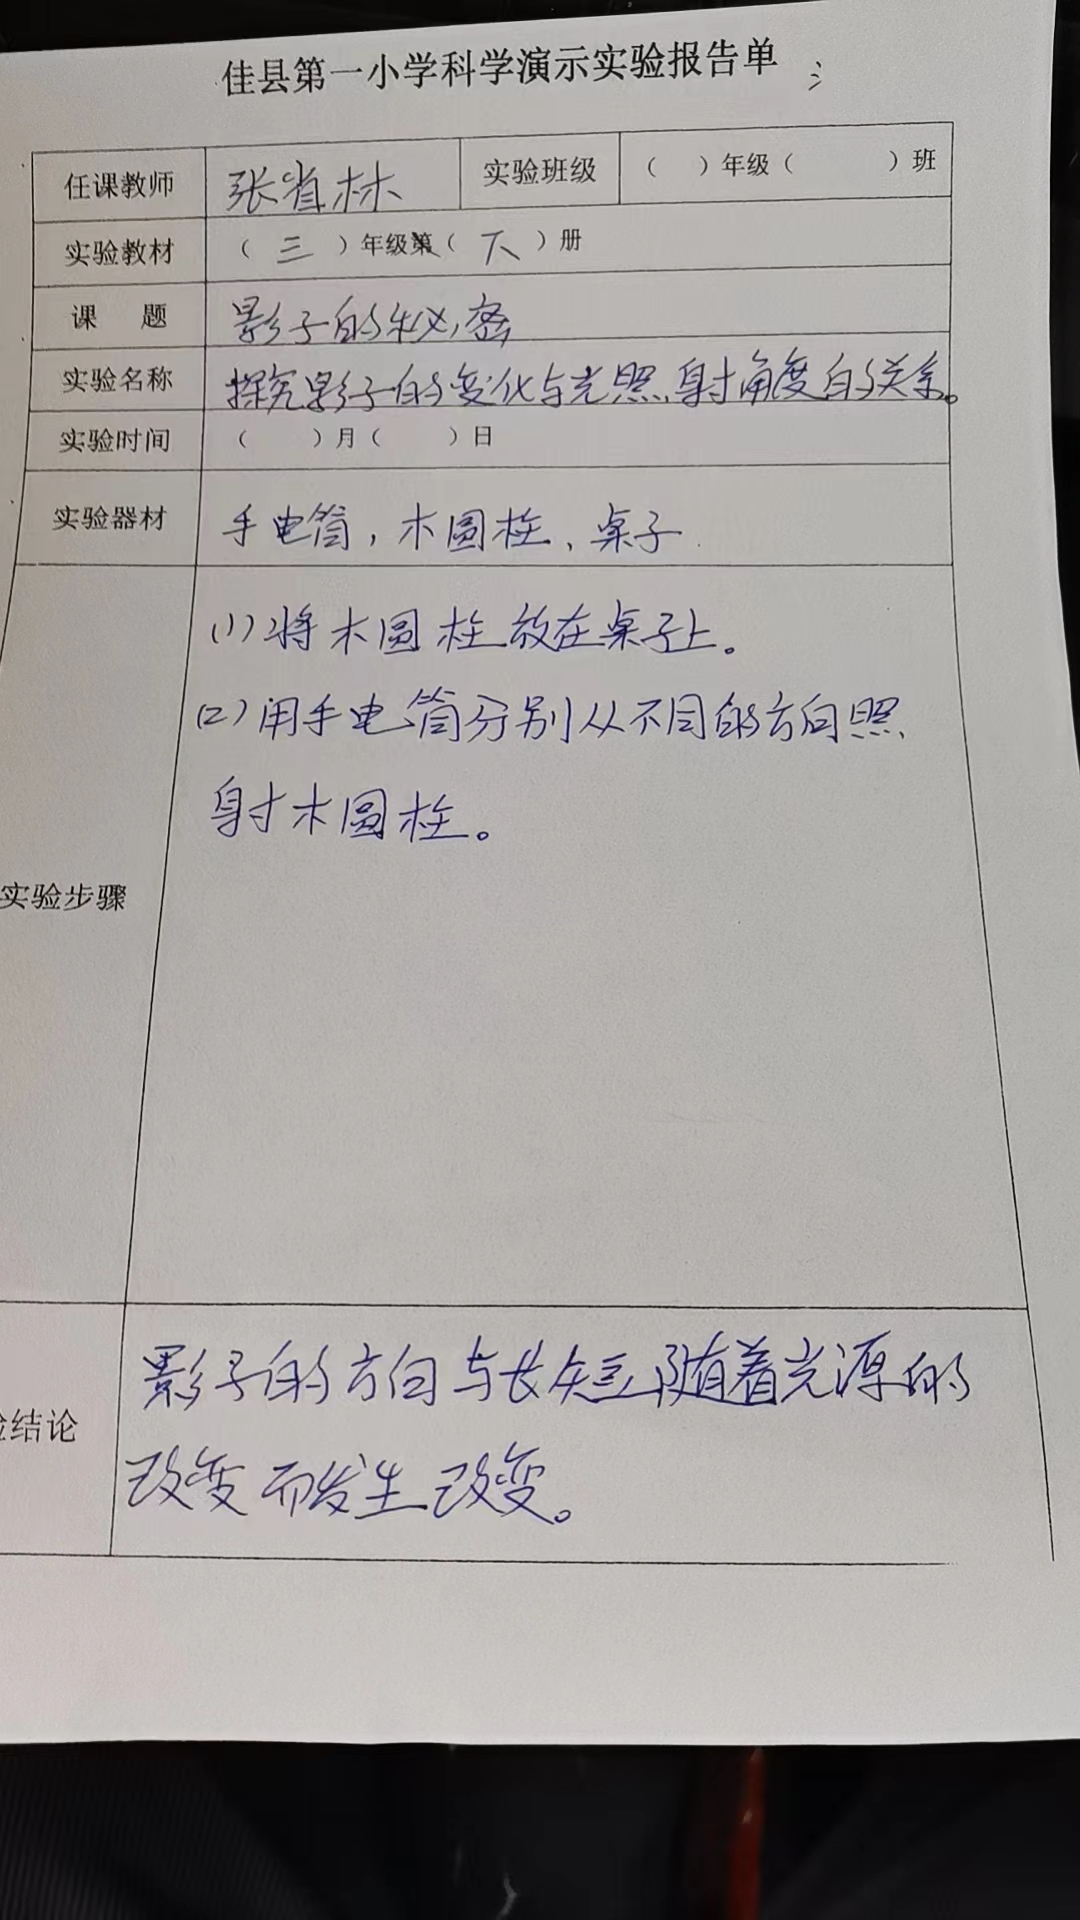 佳县第一小学科学演示实验报告单
任课教师 张省林 实验班级 （ ）年级（ ）班
实验教材 （三）年级第（下）册
课 题 影子的秘密
实验名称 探究影子的变化与光照射角度的关系。
实验时间 （ ）月（ ）日
实验器材 手电筒，木圆柱、桌子.
(1)将木圆柱放在桌子上。
(2)用手电筒分别从不同的方向照
射木圆柱。
实验步骤
影子的方向与长短随着光源的
验结论
改变而发生改变。